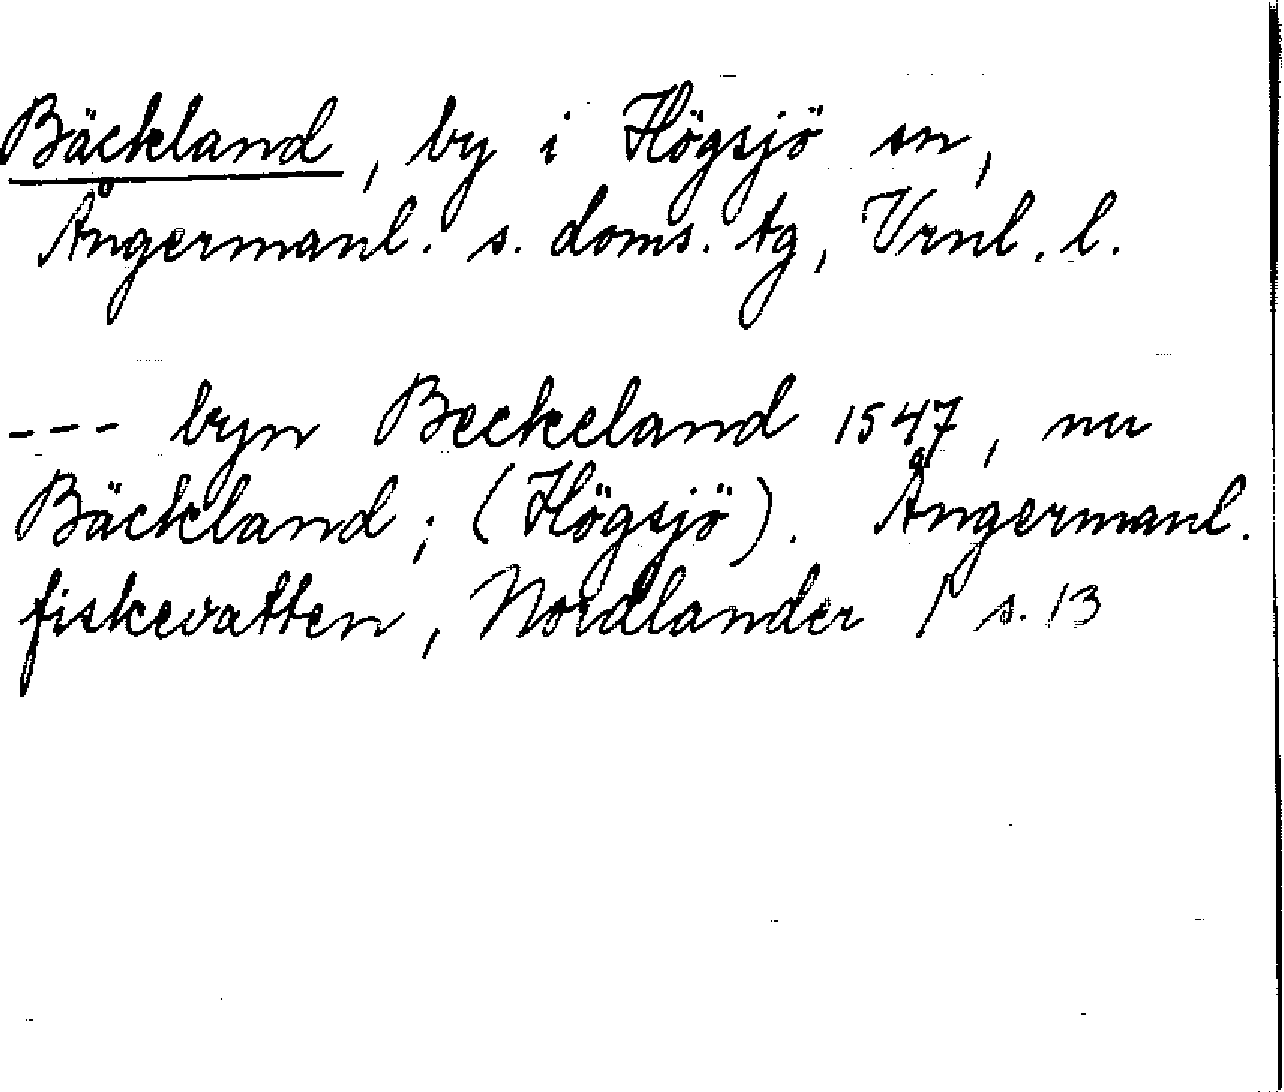 Bäckland, by i Högsjö sn,
Ångermanl. s. doms. tg, Vrnl. l.
--- byn Beckeland 1547, nu
Bäckland; (Högsjö). Ångermanl.
fiskevatten, Nordlander / s. 13